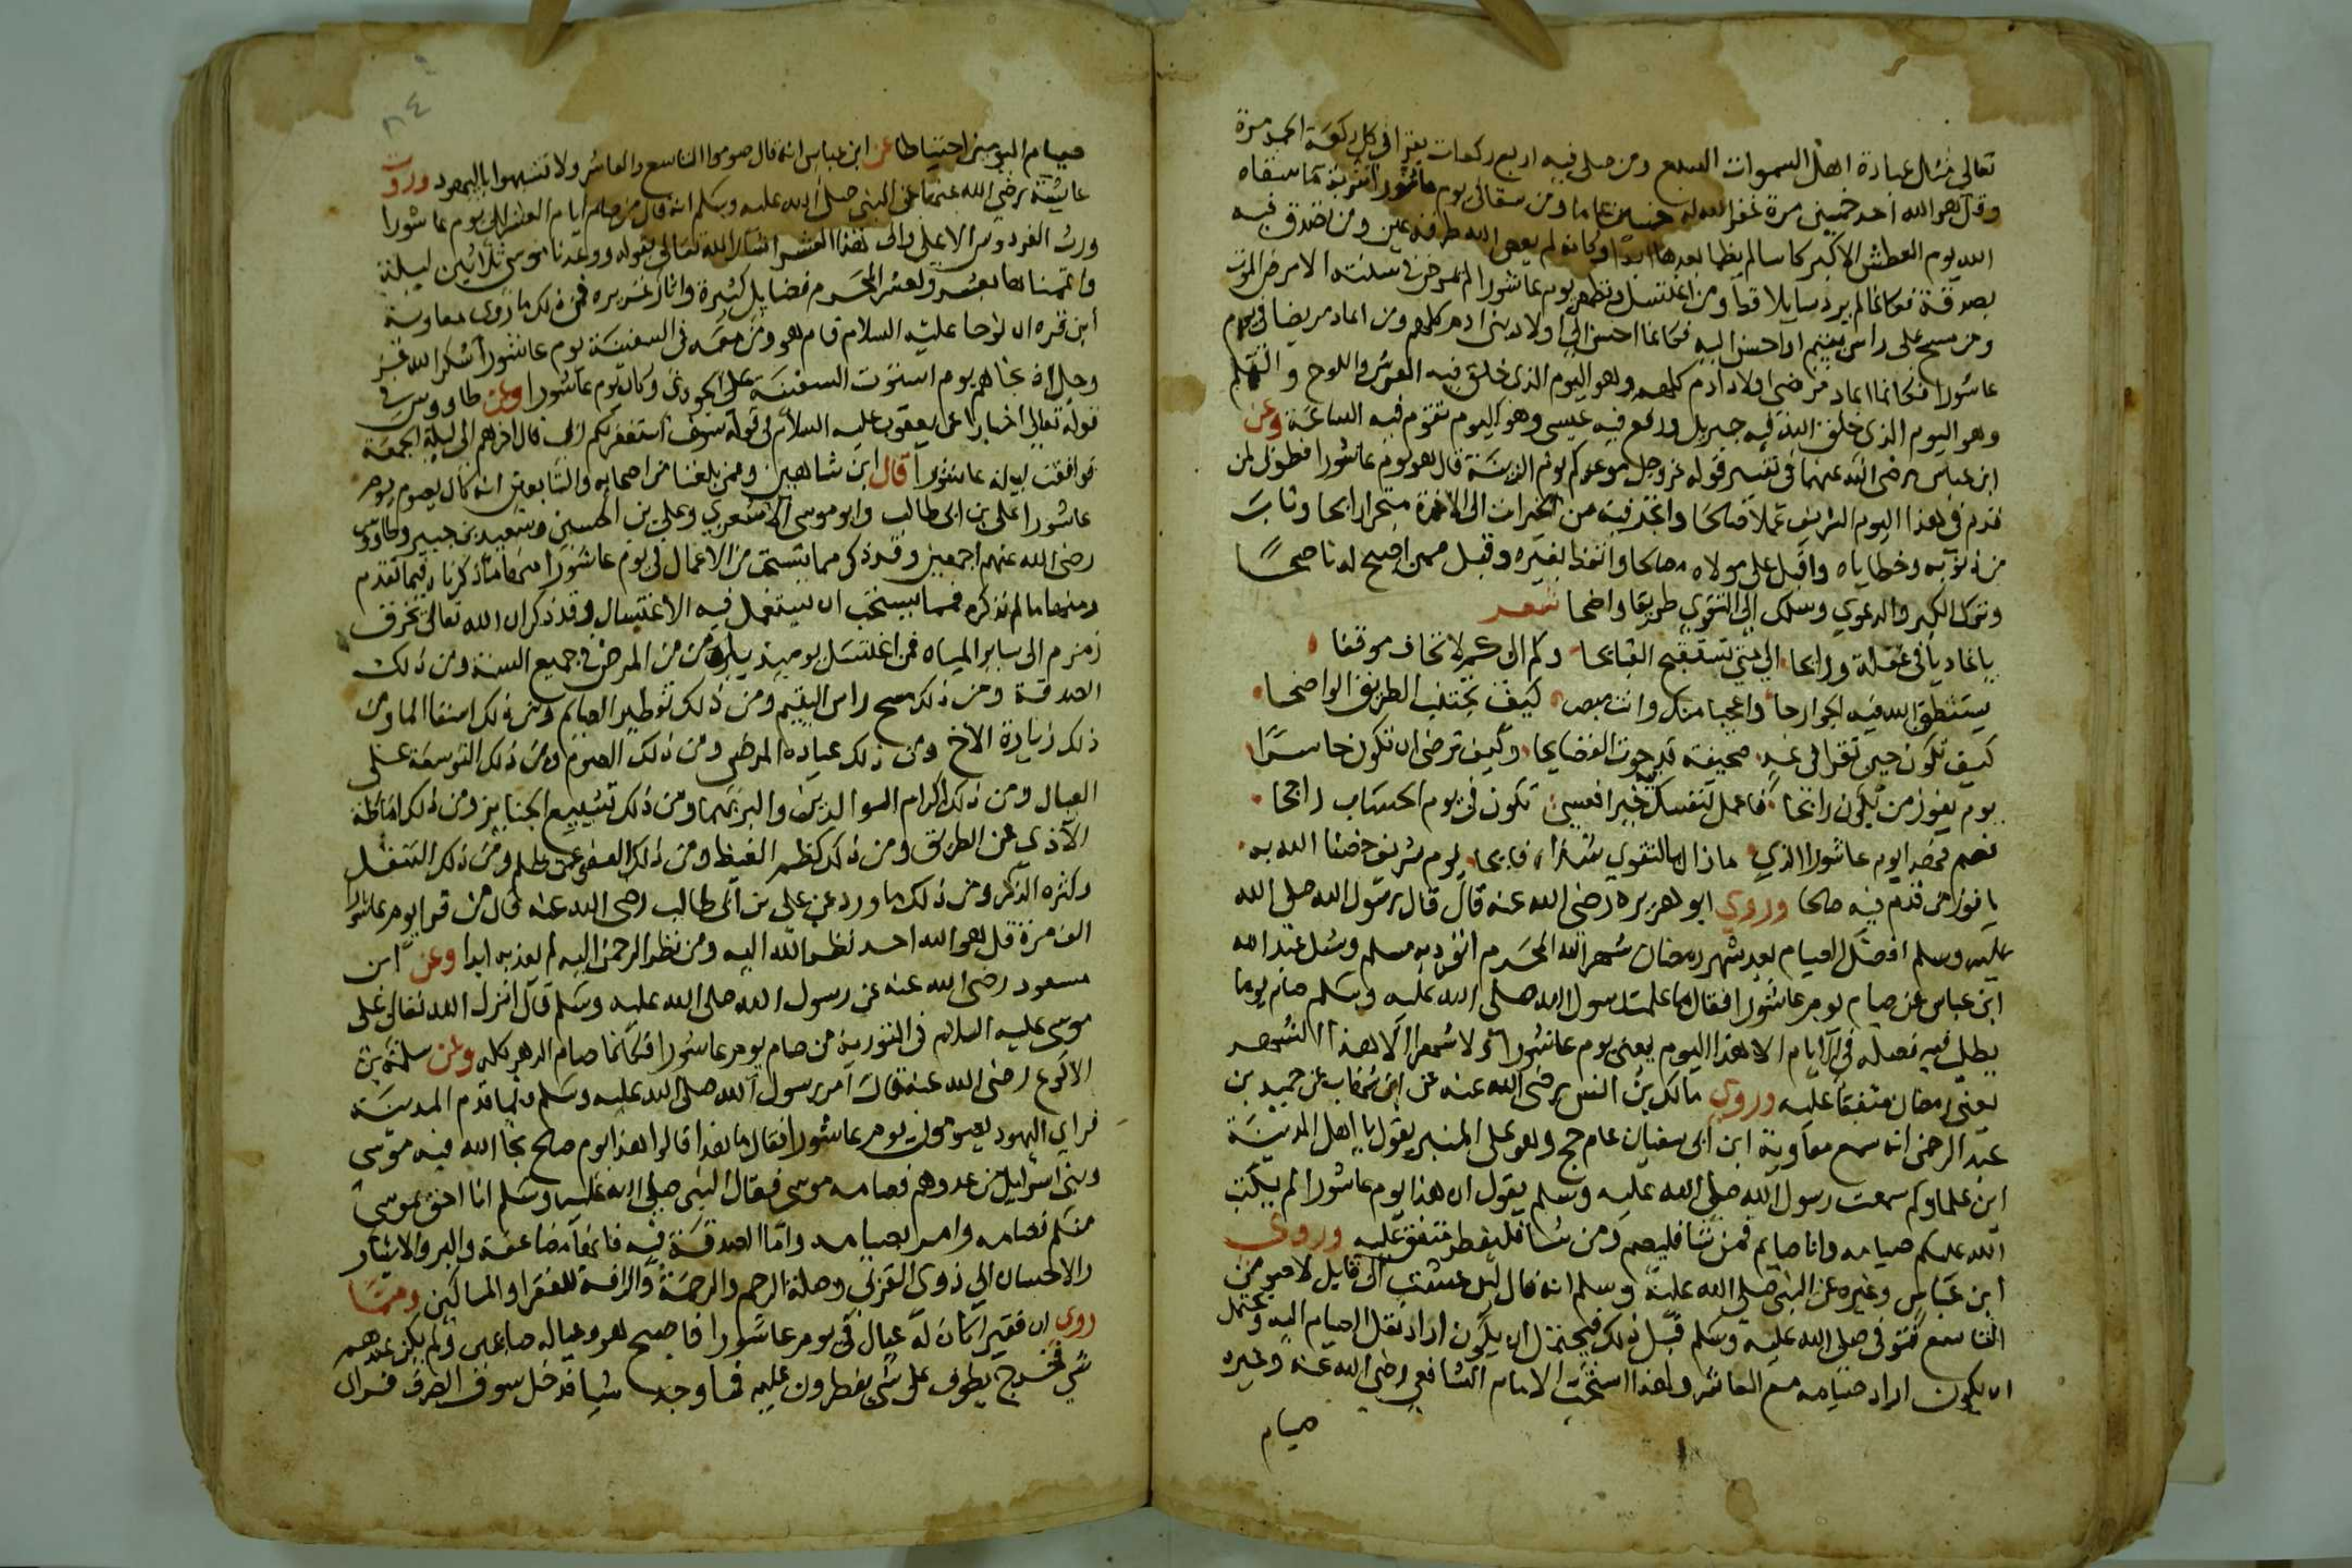 تعالى مثل عبادة اهل السموات السبع ومن صلى فيه اربع ركعات يقرا في كل ركعة الحمد مرة
وقل هو الله احد خمسين مرة غفر الله له خمسين عاما ومن سقا في يوم عاشورا شربة ما سقاه
الله يوم العطش الاكبر كاسا لم يظما بعدها ابدا وكانه لم يعص الله طرفة عين ومن تصدق فيه
بصدقة فكانما لم يرد سايلا قط ومن اغتسل وتطهر يوم عاشورا لم يمرض في سنته الا مرض الموت
ومن مسح على راس يتيم او احسن اليه فكانما احسن الى اولاد بني ادم كلهم ومن اعاد مريضا في يوم
عاشورا فكانما اعاد مرضى اولاد ادم كلهم وهو اليوم الذي خلق فيه العرش واللوح والقلم
وهو اليوم الذي خلق الله فيه جبريل ورفع فيه عيسى وهو اليوم تقوم فيه الساعة وعن
ابن عباس رضي الله عنهما في تفسير قوله عز وجل موعدكم يوم الزينة قال هو يوم عاشورا فطوبى لمن
قدم في هذا اليوم الشريف عملا صالحا واتخذ فيه من الخيرات الى الاخرة متجرا رابحا وتاب
من ذنوبه وخطاياه واقبل على مولاه مصالحا واتعظ بغيره وقبل ممن اصبح له ناصحا
وترك الكبر والدعوي وسلك الى التقوى طريقا واضحا شعر
يا غاديا في غفلة ورايحا الى متى تستقبح القبايحا وكم الى كم لا تخاف موقفا
يستنطق الله فيه الجوارحا واعجبا منك وانت مبصر كيف تجتنب الطريق الواضحا
كيف تكون حين تقرا في غد صحيفة قد حوت الفضايحا وكيف ترضى ان تكون خاسرا
يوم يفوز من يكون رابحا فاعمل لنفسك خيرا فعسى تكون في يوم الحساب راجحا
فصم فهذا يوم عاشورا الذي ما زال بالتقوى شذاه فايحا يوم شريف خصنا الله به
يا فوز من قدم فيه صالحا وروي ابو هريرة رضي الله عنه قال قال رسول الله صلى الله
عليه وسلم افضل الصيام بعد شهر رمضان شهر الله المحرم انفرد به مسلم وسئل عبد الله
ابن عباس عن صيام يوم عاشورا فقال ما علمت رسول الله صلى الله عليه وسلم صام يوما
يطلب فيه فضله في الايام الا هذا اليوم يعني يوم عاشورا ولا شهرا الا هذا الشهر
يعني رمضان متفقا عليه وروي مالك بن انس رضي الله عنه عن ابن شهاب عن حميد بن
عبد الرحمن انه سمع معاوية ابن ابي سفيان عام حج وهو على المنبر يقول يا اهل المدينة
اين علماوكم سمعت رسول الله صلى الله عليه وسلم يقول ان هذا يوم عاشورا لم يكتب
الله عليكم صيامه وانا صايم فمن شا فليصم ومن شا فليفطر متفق عليه وروى
ابن عباس وغيره عن النبي صلى الله عليه وسلم انه قال لين عشت الى قابل لاصومن
التاسع فتوفي صلى الله عليه وسلم قبل ذلك فيحتمل ان يكون اراد نقل الصيام اليه ويحتمل
ان يكون اراد صيامه مع العاشر ولهذا استحب الامام الشافعي رضي الله عنه وغيره
صيام
٨٤
صيام اليومين احتياطا عن ابن عباس انه قال صوموا التاسع والعاشر ولا تشبهوا باليهود وروت
عايشة رضي الله عنها عن النبي صلى الله عليه وسلم انه قال من صام ايام العشر الى يوم عاشورا
ورث الفردوس الاعلى والى هذا العشر اشار الله تعالى بقوله وواعدنا موسى ثلاثين ليلة
واتممناها بعشر ولعشر المحرم فضايل كثيرة واثار غزيره فمن ذلك ما روى معاوية
ابن قره ان نوحا عليه السلام قام هو ومن معه في السفينة يوم عاشورا شكرا لله عز
وجل اذ نجاهم يوم استوت السفينة على الجودي وكان يوم عاشورا وعن طاووس في
قوله تعالى اخبارا عن يعقوب عليه السلام في قوله سوف استغفر لكم ربي قال اخرهم الى ليلة الجمعة
فوافقت ليلة عاشورا قال ابن شاهين وممن بلغنا من اصحابه والتابعين انه كان يصوم يوم
عاشورا على بن ابى طالب وابو موسى الاشعري وعلي بن الحسين وسعيد بن جبير وطاووس
رضي الله عنهم اجمعين وقد ذكر مما يستحب من الاعمال في يوم عاشورا منها ما ذكرناه فيما تقدم
ومنها ما لم نذكره فمما يستحب ان يستعمل فيه الاغتسال وقد ذكر ان الله تعالى يخرق
زمزم الى ساير المياه فمن اغتسل يوميذ يامن من المرض في جميع السنة ومن ذلك
الصدقة ومن ذلك مسح راس اليتيم ومن ذلك تفطير الصايم ومن ذلك اسقا الما ومن
ذلك زيارة الاخ ومن ذلك عيادة المرضى ومن ذلك الصوم ومن ذلك التوسعة على
العيال ومن ذلك اكرام الوالدين والبر بهما ومن ذلك تشييع الجنايز ومن ذلك اماطة
الاذي عن الطريق ومن ذلك كظم الغيظ ومن ذلك العفو عمن ظلم ومن ذلك التنفل
وكثرة الذكر ومن ذلك ما ورد عن علي بن ابى طالب رضي الله عنه قال من قرا يوم عاشورا
الف مرة قل هو الله احد نظر الله اليه ومن نظر الرحمن اليه لم يعذبه ابدا وعن ابن
مسعود رضي الله عنه عن رسول الله صلى الله عليه وسلم قال انزل الله تعالى على
موسى عليه السلام في التورية من صام يوم عاشورا فكانما صام الدهر كله وعن سلمة بن
الاكوع رضي الله عنه قال امر رسول الله صلى الله عليه وسلم ولما قدم المدينة
فراي اليهود يصومون يوم عاشورا فقال ما هذا قالوا هذا يوم صالح نجا الله فيه موسى
وبنى اسرائيل من عدوهم فصامه موسى فقال النبي صلى الله عليه وسلم انا احق بموسى
منكم فصامه وامر بصيامه واما الصدقة فيه فانها مضاعفة والبر والايثار
والاحسان الى ذوى القربى وصلة الرحم والرحمة والرافة للفقرا والمساكين ومما
روى ان فقيرا كان له عيال في يوم عاشورا فاصبح هو وعياله صايمين ولم يكن عندهم
شي فخرج يطوف على شي يفطرون عليه فما وجد شيا فدخل سوق الصرف فراى